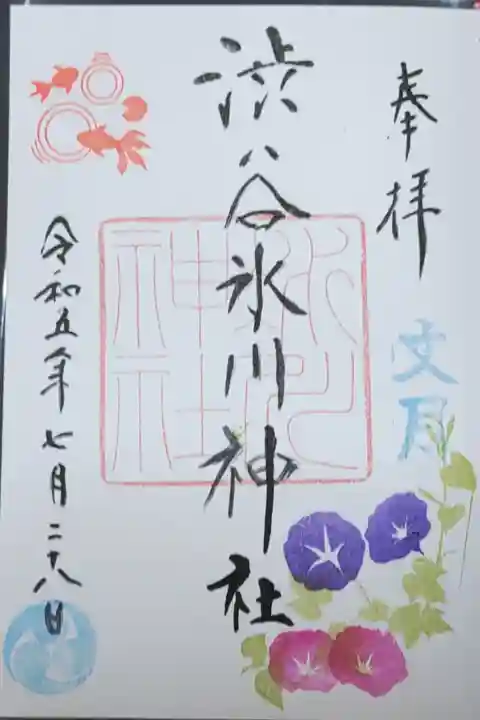 奉拝
文月
渋谷氷川神社
氷川
神社
令和五年七月二十八日